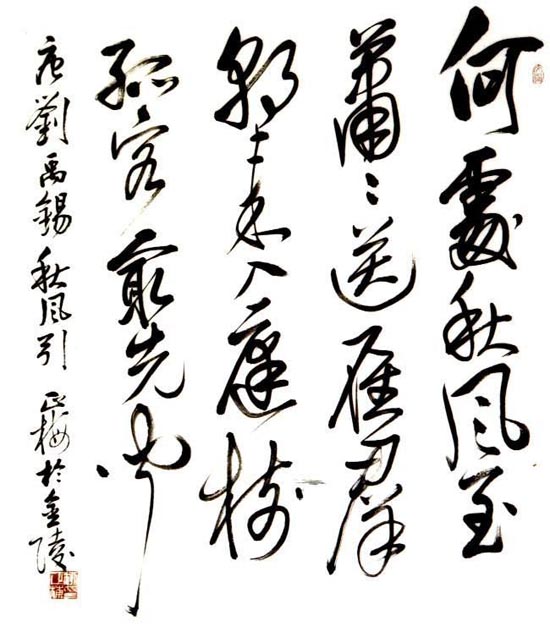 何處秋風至
蕭〻送雁群
朝來入庭樹
孤客最先聞
唐劉禹錫秋風引 正梅於金陵